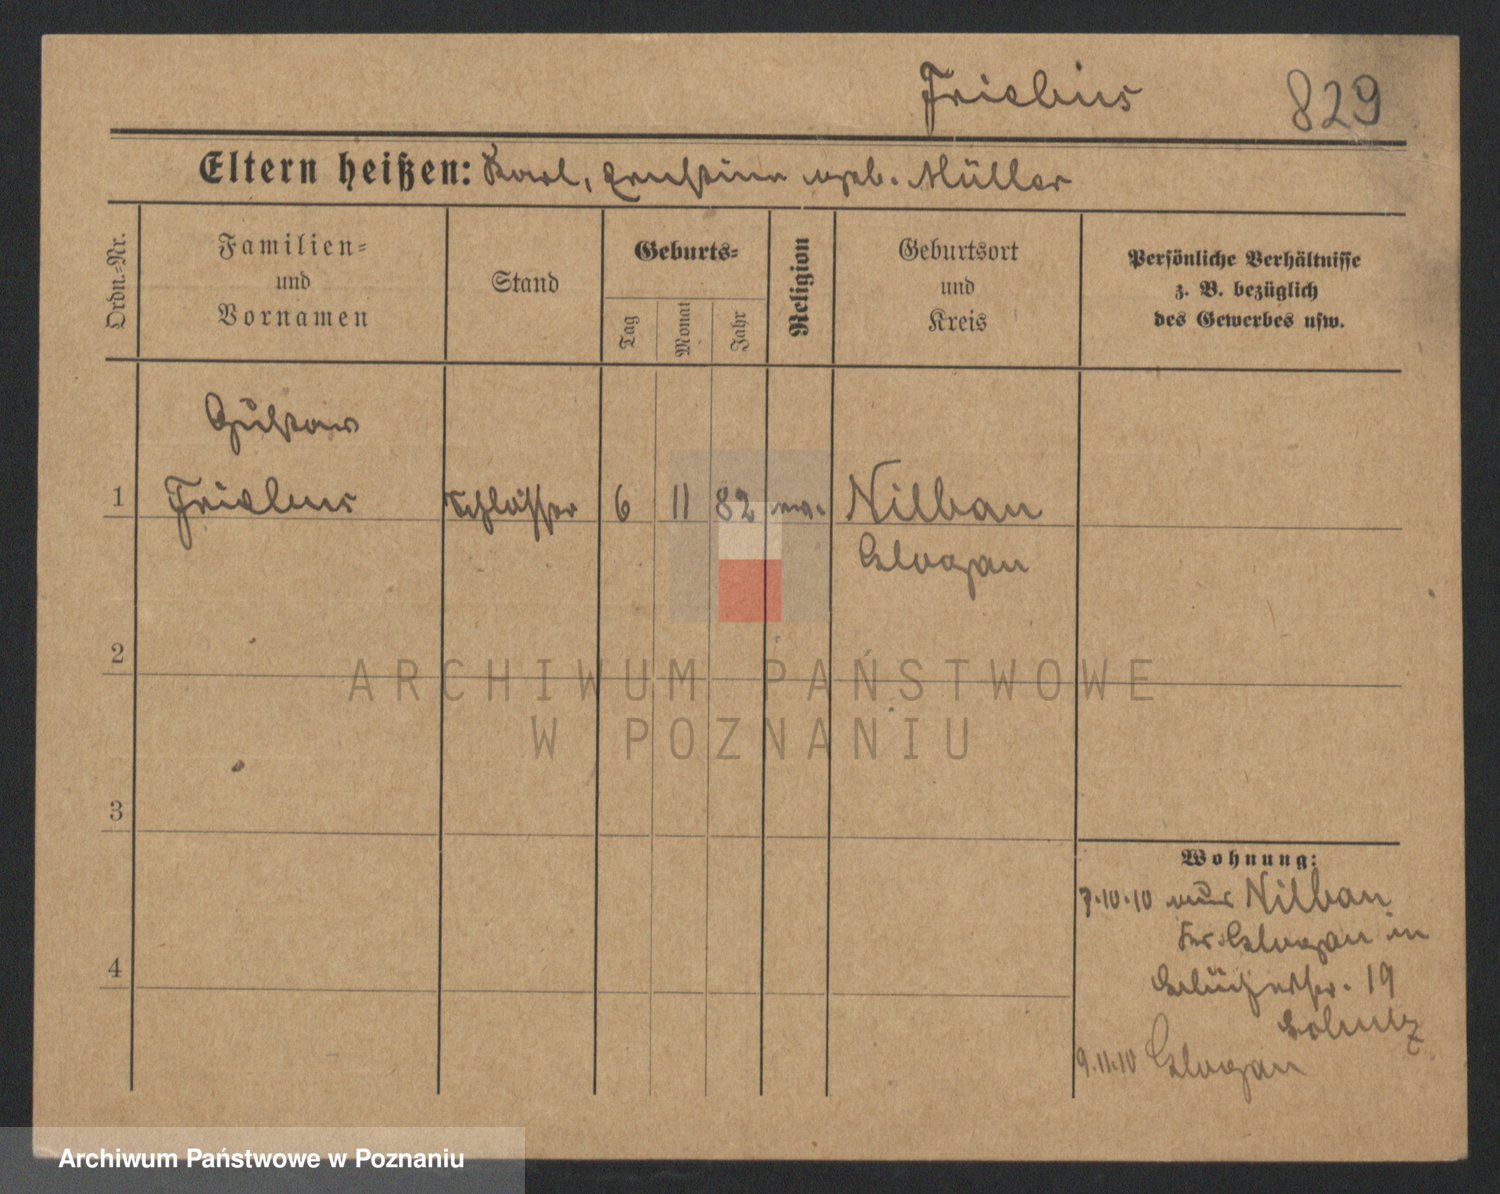 Friebus 829
Eltern heißen: Karl, Ernestine geb. Müller
Ordn.-Nr.
Familien-
und
Vornamen
Stand
Geburts-
Tag
Monat
Jahr
Religion
Geburtsort
und
Kreis
Persönliche Verhältnisse
z. B. bezüglich
des Gewerbes usw.
Gustav
1 Friebus Schlosser 6 11 82 ev. Nilbau
Glogau
2
ARCHIWUM PAŃSTWOWE
W POZNANIU
3
4
Wohnung:
7.10.10 Nilbau
Kr. Glogau in
Blücherstr. 19
9.11.10 Glogau
Archiwum Państwowe w Poznaniu